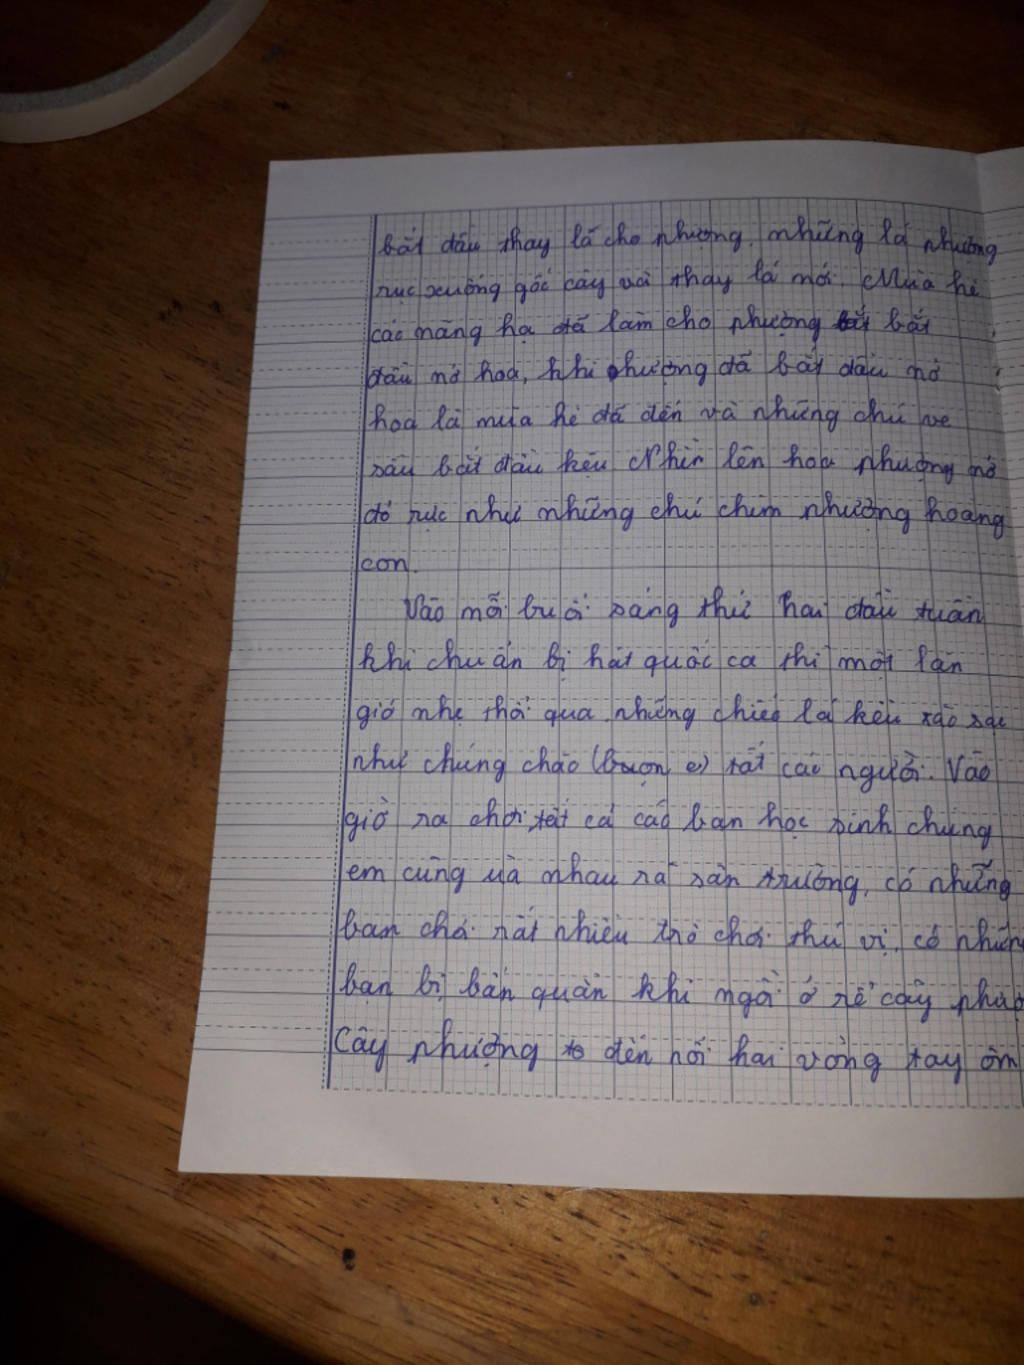 bắt đầu thay lá cho phượng, những lá phượng
rục xuống gốc cây và thay lá mới. Mùa hè
các nàng hạ đã làm cho phượng bắt
đầu nở hoa, khi phượng đã bắt đầu nở
hoa là mùa hè đã đến và những chú ve
sầu bắt đầu kêu Nhìn lên hoa phượng nở
đỏ rực như những chú chim phượng hoàng
con.
Vào mỗi buổi sáng thứ hai đầu tuần
khi chuẩn bị hát quốc ca thì một làn
gió nhẹ thổi qua những chiếc lá kêu xào xạc
như chúng chào tất các người. Vào
giờ ra chơi, tất cả các bạn học sinh chúng
em cũng ùa nhau ra sân trường, có những
bạn chơi rất nhiều trò chơi thú vị, có những
bạn bị bẩn quần khi ngồi ở rễ cây
Cây phượng to đến nỗi hai vòng tay ôm